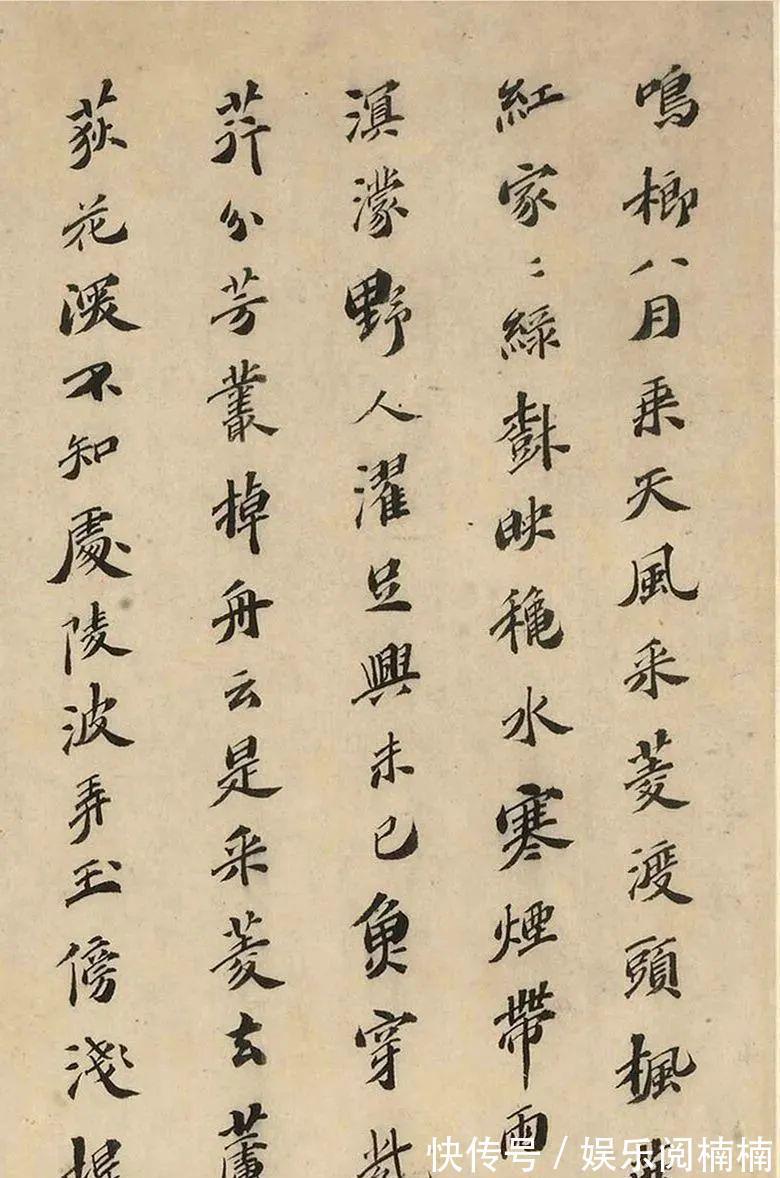 鳴榔八月乘天風采菱渡頭楓
紅家〻綠樹映穐水寒煙帶雨
溟濛野人濯足興未已魚穿紫
荇分芳叢棹舟云是采菱去蘆
荻花深不知處陵波弄玉傍淺堤
快传号 / 娱乐阅楠楠